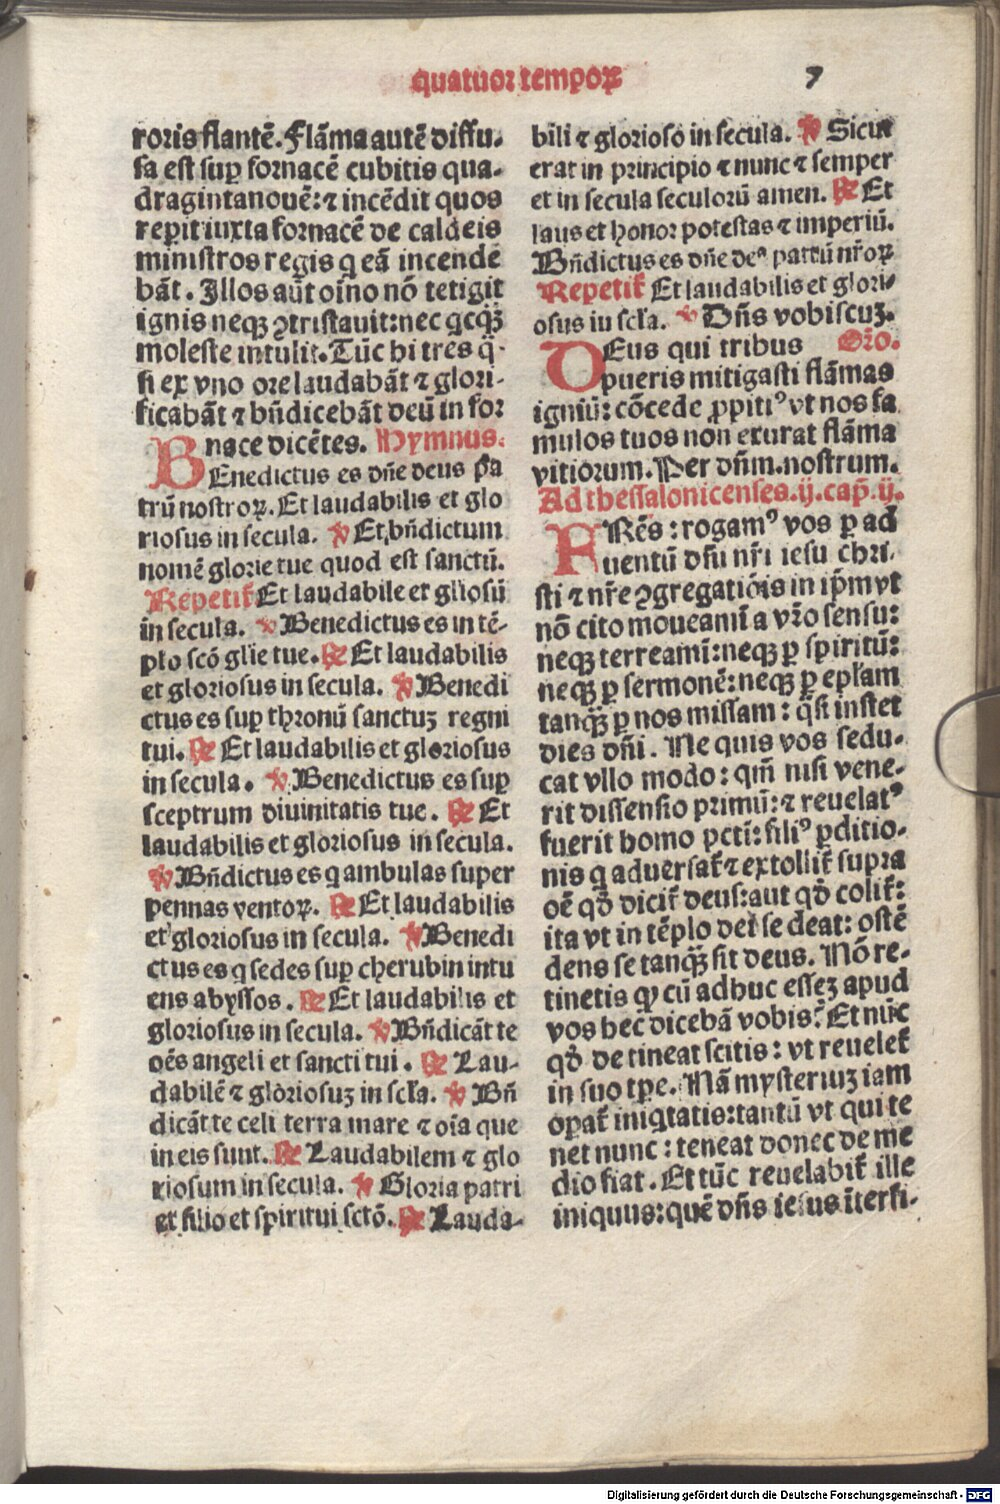 quatuor tempoꝝ
7
roris flantē. Flāma autē diffu-
sa est sup fornacē cubitis qua-
dragintanouē: ⁊ incēdit quos
reꝑit iuxta fornacē de caldeis
ministros regis q eā incende
bāt. Illos aūt oīno nō tetigit
ignis neqꝫ ꝯtristauit: nec qcqꝫ̄
moleste intulit. Tūc hi tres q̄-
si ex vno ore laudabāt ⁊ glori-
ficabāt ⁊ bn̄dicebāt deū in for
nace dicētes. Hymnus.
BEnedictus es dn̄e deus pa
trū nostroꝝ. Et laudabilis et glo
riosus in secula. ℣ Et bn̄dictum
nomē glorie tue quod est sanctū.
Repetit̄ Et laudabile et gl̄iosū
in secula. ℣ Benedictus es in tē-
plo scō gl̄ie tue. ℟ Et laudabilis
et gloriosus in secula. ℣ Benedi
ctus es sup thronū sanctuꝫ regni
tui. ℟ Et laudabilis et gloriosus
in secula. ℣ Benedictus es sup
sceptrum diuinitatis tue. ℟ Et
laudabilis et gloriosus in secula.
℣ Bn̄dictus es q ambulas super
pennas ventoꝝ. ℟ Et laudabilis
et gloriosus in secula. ℣ Benedi
ctus es q sedes sup cherubin intu
ens abyssos. ℟ Et laudabilis et
gloriosus in secula. ℣ Bn̄dicāt te
oēs angeli et sancti tui. ℟ Lau-
dabilē ⁊ gloriosuꝫ in scl̄a. ℣ Bn̄
dicāt te celi terra mare ⁊ oīa que
in eis sunt. ℟ Laudabilem ⁊ glo
riosum in secula. ℣ Gloria patri
et filio et spiritui sctō. ℟ Lauda-
bili ⁊ glorioso in secula. ℣ Sicut
erat in principio ⁊ nunc ⁊ semper
et in secula seculorū amen. ℟ Et
laus et honor potestas ⁊ imperiū.
Bn̄dictus es dn̄e deꝰ patrū nr̄oꝝ
Repetit̄ Et laudabilis et glori-
osus in scl̄a. ℣ Dn̄s vobiscuꝫ.
DEus qui tribus Orō.
pueris mitigasti flāmas
igniū: cōcede ꝓpitiꝰ vt nos fa
mulos tuos non exurat flāma
vitiorum. Per dn̄m. nostrum.
Ad thessalonicenses. ij. cap̄. ij.
FRēs: rogamꝰ vos ꝑ ad
uentū dn̄i nr̄i iesu chri-
sti ⁊ nr̄e ꝯgregatiōis in ip̄m vt
nō cito moueamī a vr̄o sensu:
neqꝫ terreamī: neqꝫ ꝑ spiritū:
neqꝫ ꝑ sermonē: neqꝫ ꝑ epl̄am
tanqꝫ̄ ꝑ nos missam: q̄si instet
dies dn̄i. Ne quis vos sedu-
cat vllo modo: qm̄ nisi vene-
rit dissensio primū: ⁊ reuelatꝰ
fuerit homo pctī: filiꝰ ꝑditio-
nis q aduersat̄ ⁊ extollit̄ supra
oē qd̄ dicit̄ deus: aut qd̄ colit̄:
ita vt in tēplo dei sedeat: ostē
dens se tanqꝫ̄ sit deus. Nō re-
tinetis ꝙ cū adhuc esseꝫ apud
vos hec dicebā vobis? Et nūc
qd̄ detineat scitis: vt reuelet̄
in suo tꝑe. Nā mysteriuꝫ iam
opat̄ iniqtatis: tantū vt qui te
net nunc: teneat donec de me
dio fiat. Et tūc reuelabit̄ ille
iniquus: quē dn̄s iesus īterfi-
Digitalisierung gefördert durch die Deutsche Forschungsgemeinschaft - DFG